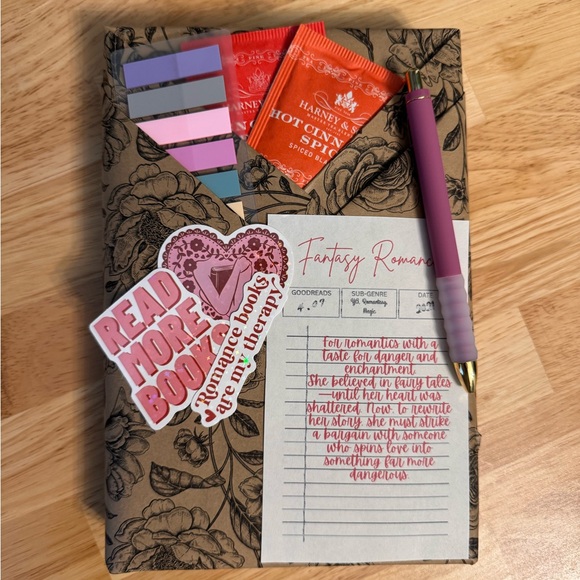 HARNEY & S
HOT CINN
SPIC
SPICED BLA
READ
MORE
BOOKS
Romance books
are my therapy
Fantasy Romance
GOODREADS
SUB-GENRE
DATE
4.07
YA, Romantasy,
Magic
For romantics with a
taste for danger and
enchantment.
She believed in fairy tales
—until her heart was
shattered. Now, to rewrite
her story, she must strike
a bargain with someone
who spins love into
something far more
dangerous.